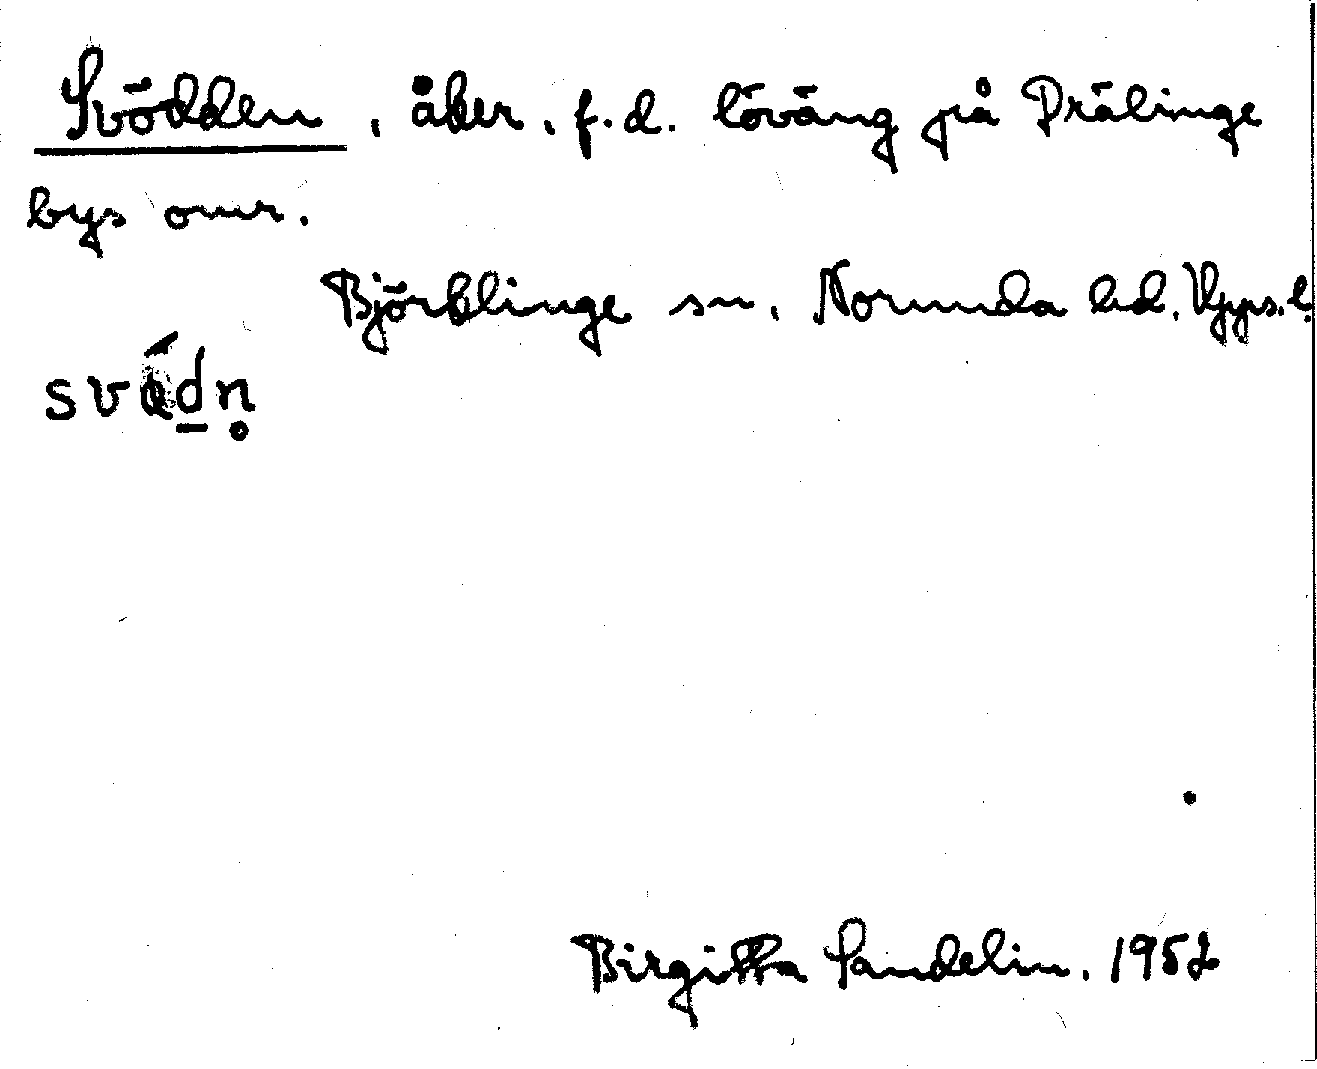 Svödden, åker, f.d. löväng på Drälinge
bys omr.
Björklinge sn, Norunda hd, Upps. l.
Birgitta Sandelin, 1952